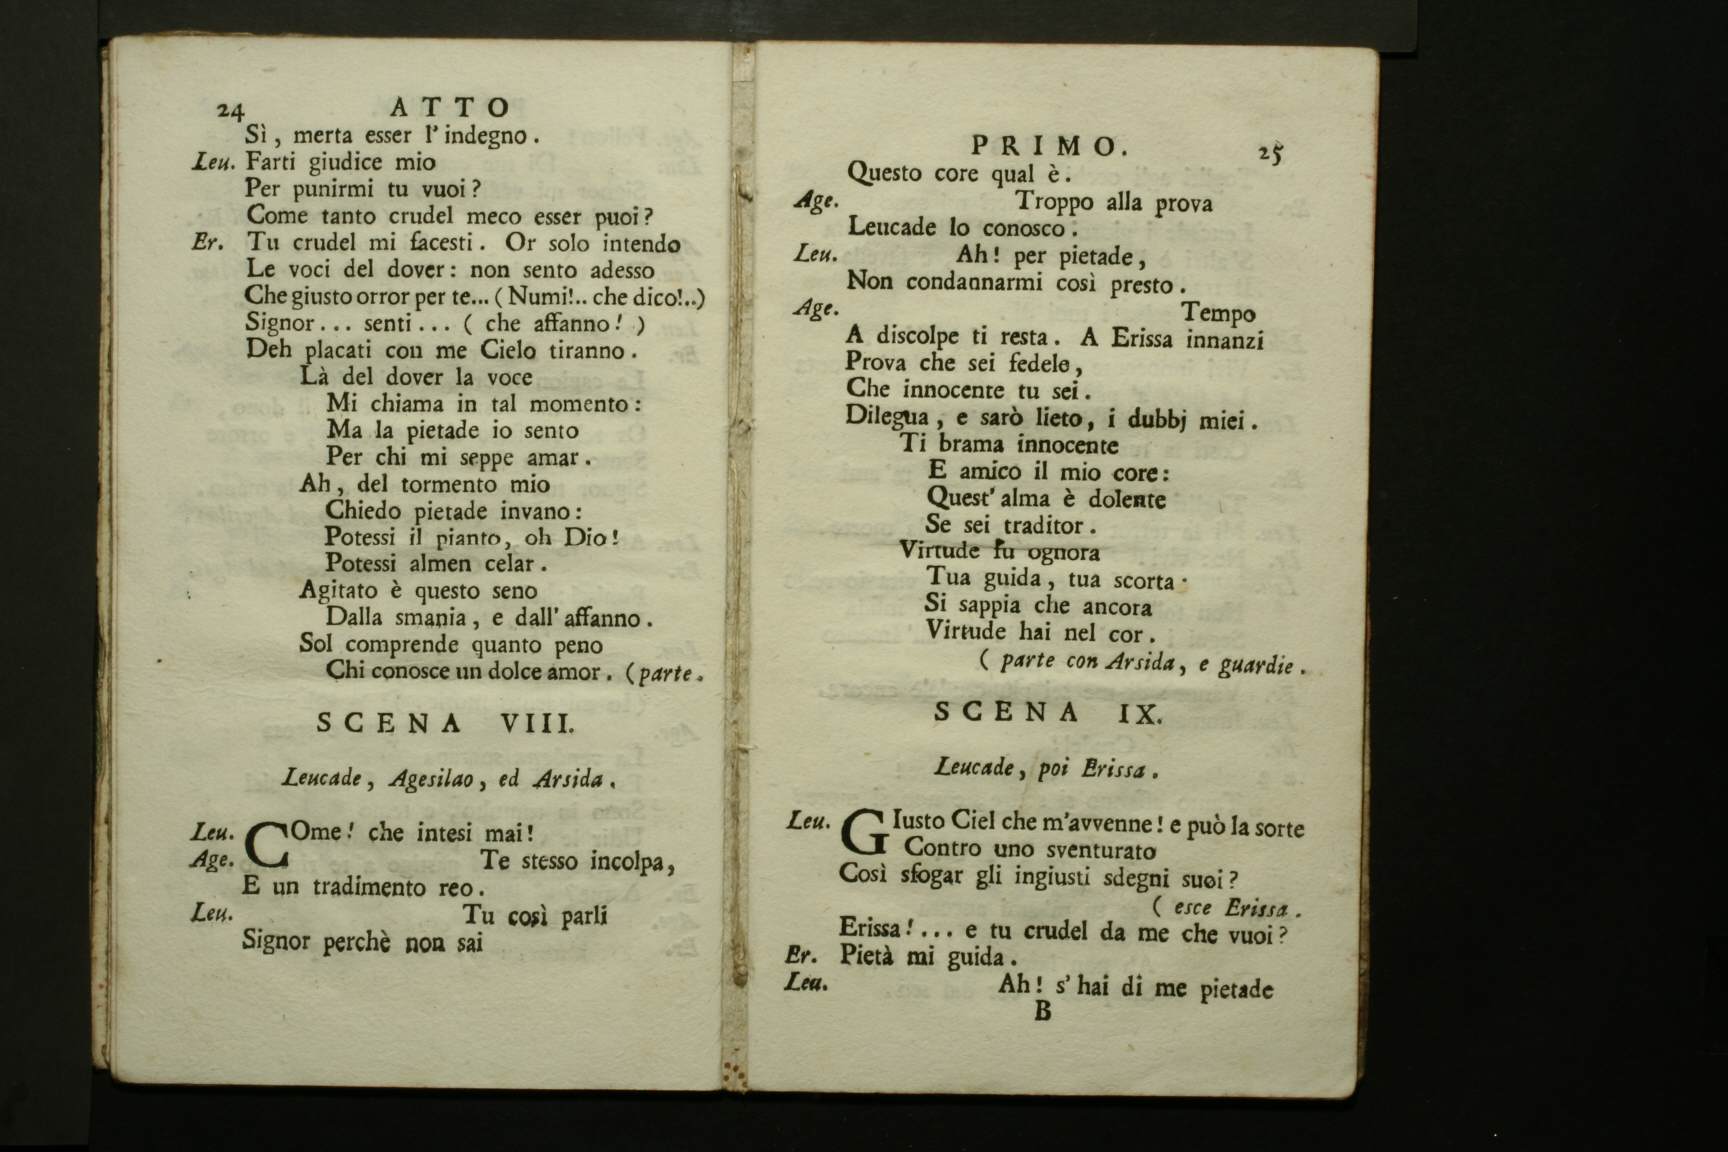 24 ATTO
Sì, merta esser l'indegno.
Leu. Farti giudice mio
Per punirmi tu vuoi?
Come tanto crudel meco esser puoi?
Er. Tu crudel mi facesti. Or solo intendo
Le voci del dover: non sento adesso
Che giusto orror per te... (Numi!.. che dico!..)
Signor... senti... ( che affanno! )
Deh placati con me Cielo tiranno.
Là del dover la voce
Mi chiama in tal momento:
Ma la pietade io sento
Per chi mi seppe amar.
Ah, del tormento mio
Chiedo pietade invano:
Potessi il pianto, oh Dio!
Potessi almen celar.
Agitato è questo seno
Dalla smania, e dall'affanno.
Sol comprende quanto peno
Chi conosce un dolce amor. (parte.
SCENA VIII.
Leucade, Agesilao, ed Arsida.
Leu. COme! che intesi mai!
Age. Te stesso incolpa,
E un tradimento reo.
Leu. Tu così parli
Signor perchè non sai
PRIMO. 25
Questo core qual è.
Age. Troppo alla prova
Leucade lo conosco.
Leu. Ah! per pietade,
Non condannarmi così presto.
Age. Tempo
A discolpe ti resta. A Erissa innanzi
Prova che sei fedele,
Che innocente tu sei.
Dilegua, e sarò lieto, i dubbj miei.
Ti brama innocente
E amico il mio core:
Quest'alma è dolente
Se sei traditor.
Virtude fu ognora
Tua guida, tua scorta.
Si sappia che ancora
Virtude hai nel cor.
( parte con Arsida, e guardie.
SCENA IX.
Leucade, poi Erissa.
Leu. GIusto Ciel che m'avvenne! e può la sorte
Contro uno sventurato
Così sfogar gli ingiusti sdegni suoi?
( esce Erissa.
Erissa!... e tu crudel da me che vuoi?
Er. Pietà mi guida.
Leu. Ah! s'hai di me pietade
B